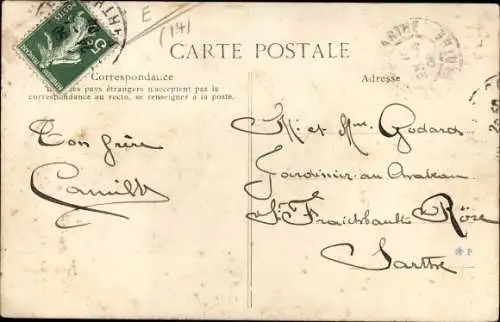 E
(14)
CARTE POSTALE
Correspondance
pays étrangers n'acceptent pas la
correspondance au recto, se renseigner à la poste.
Adresse
SARTHE
Ton frère
Camille
M. et Mme Godard
Jardinier au Chateau
St Fraichbault de Röre
Sarthe